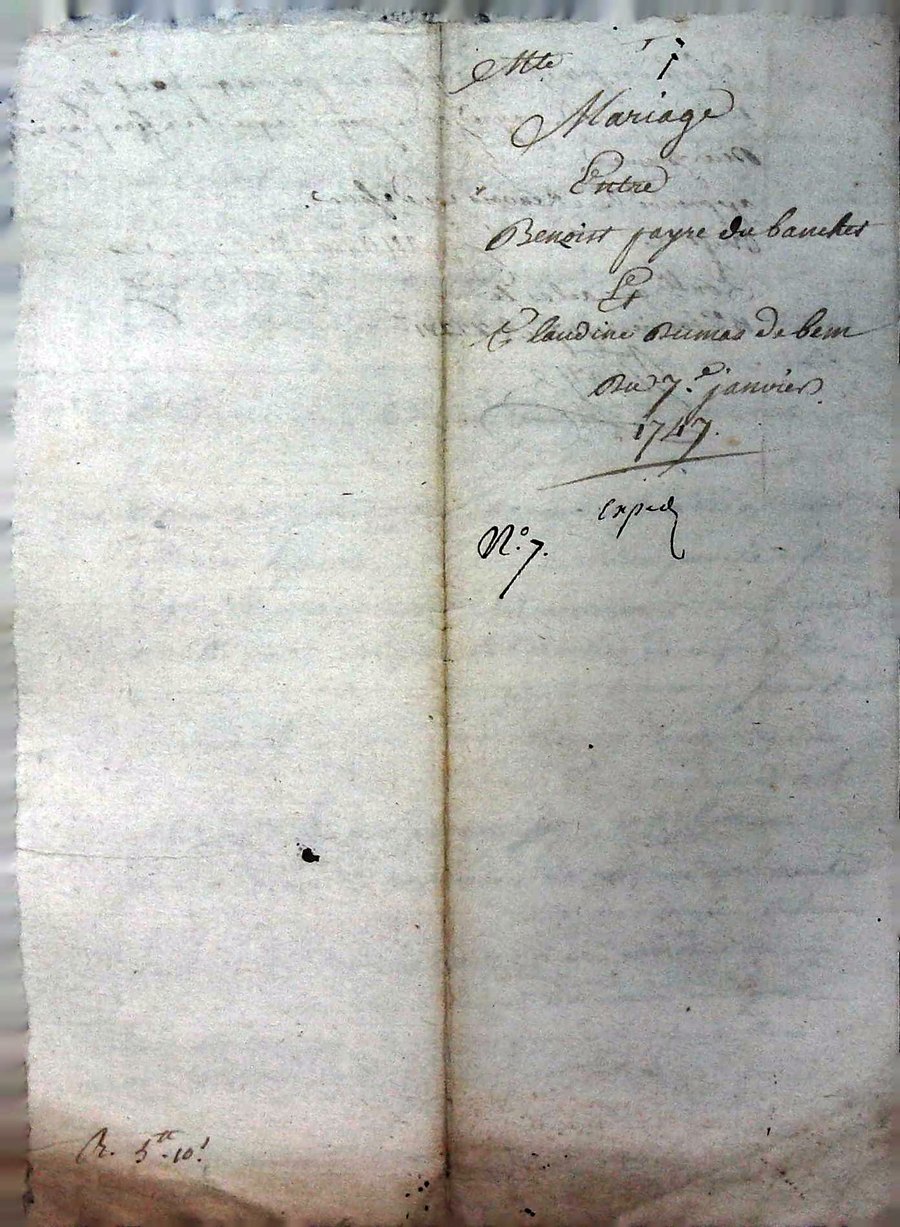 Mariage
Entre
Benoist fayre du banchet
Et
Claudine Dumas de bem
Du 7.e janvier
1747.
exped
N.o 7.
R. 5.tt 10.s